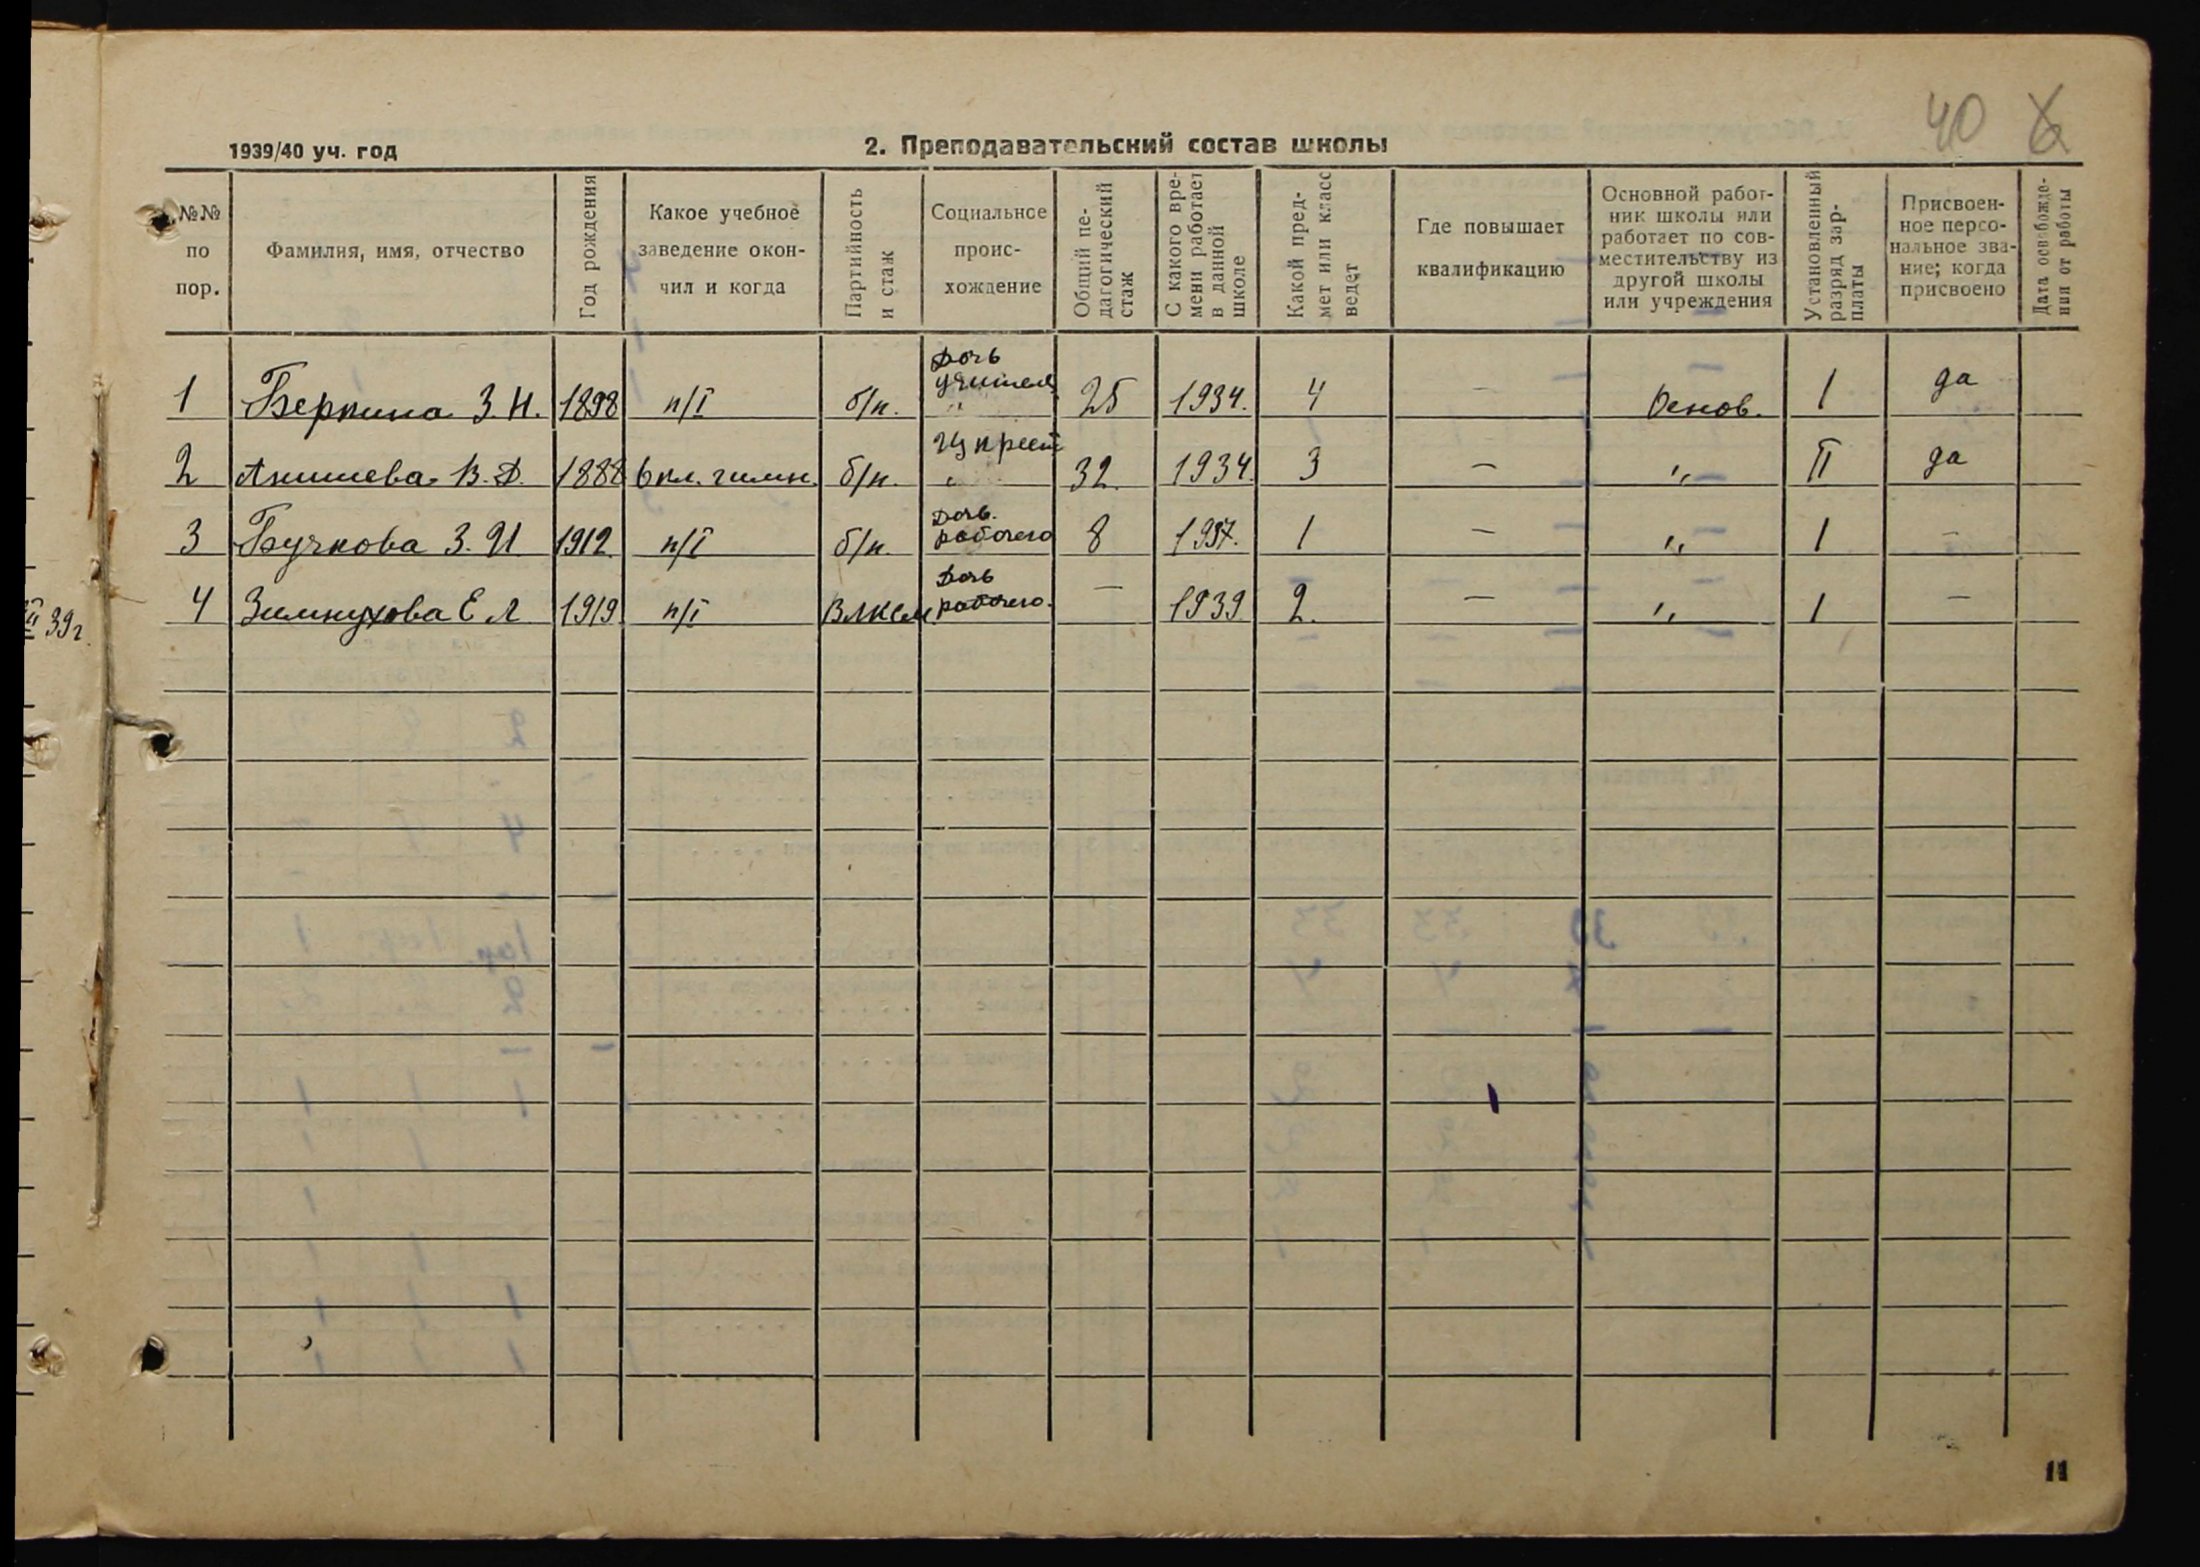 40
1939/40 уч. год
2. Преподавательский состав школы
№№ по пор.
Фамилия, имя, отчество
Год рождения
Какое учебное заведение окон-
чил и когда
Партийность и стаж
Социальное проис-
хождение
Общий пе-
дагогический
стаж
С какого вре-
мени работает
в данной
школе
Какой пред-
мет или класс
ведет
Где повышает
квалификацию
Основной работ-
ник школы или
работает по сов-
местительству из
другой школы
или учреждения
Установленный
разряд зар-
платы
Присвоен-
ное персо-
нальное зва-
ние; когда
присвоено
Дата освобожде-
ния от работы
1 З. Н. 1898 п/I б/п. Дочь учителя " 25 1934. 4 — Основ. I да
2 В. Д. 1888 6 кл. гимн. б/п. Из крест " 32. 1934. 3 — " II да
3 Бучкова З. И. 1912. п/I б/п. Дочь. рабочего 8 1937. 1 — " I —
4 Зимнухова Е Л 1919. п/I ВЛКСМ Дочь рабочего. — 1939 2. — " I —
39г.
11